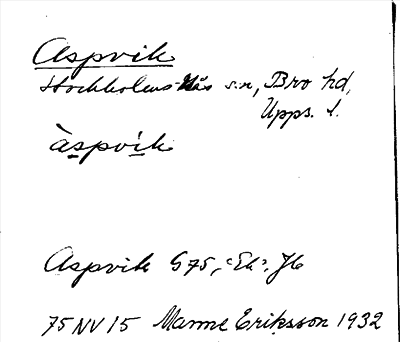 Aspvik
Stockholms-Näs sn, Bro hd,
Upps. l.
àspvík
Aspvik G75, "Ek", Jb
75 NV 15 Manne Eriksson 1932